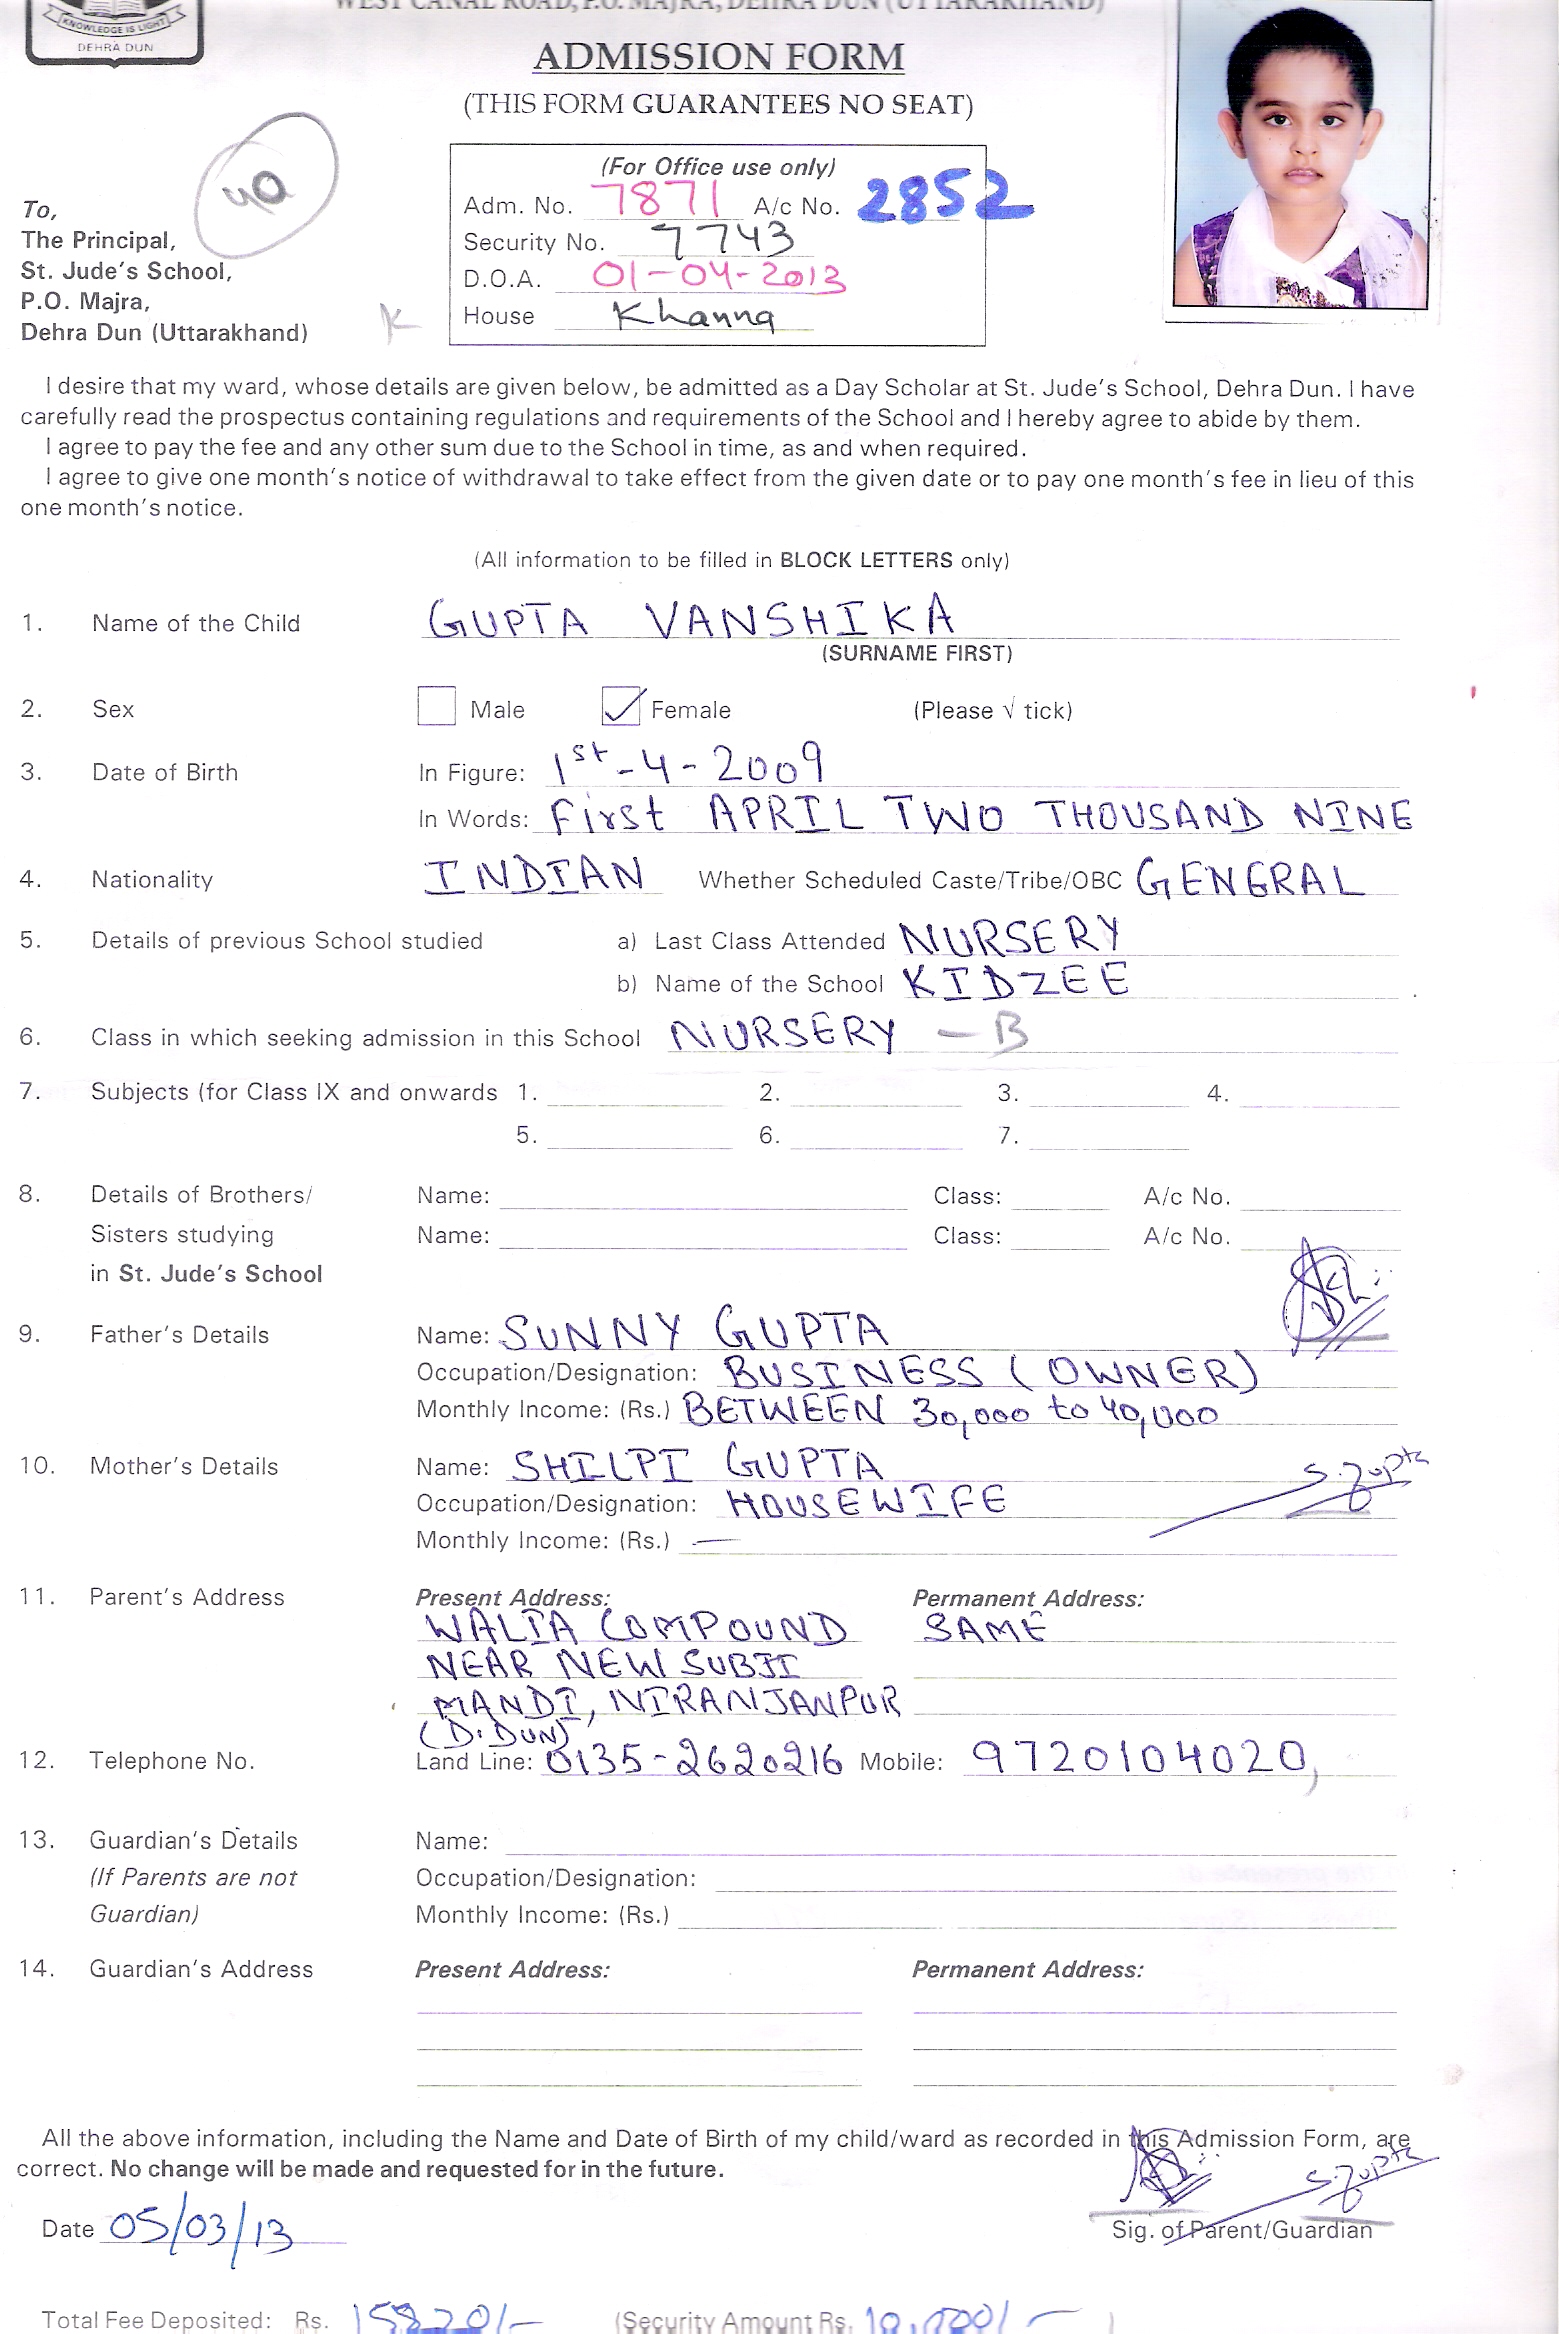 KNOWLEDGE IS LIGHT
DEHRA DUN
WEST CANAL ROAD, P.O. MAJRA, DEHRA DUN (UTTARAKHAND)
ADMISSION FORM
(THIS FORM GUARANTEES NO SEAT)
(For Office use only)
Adm. No. 7871 A/c No. 2852
Security No. 7743
D.O.A. 01-04-2013
House Khanna
To,
The Principal,
St. Jude's School,
P.O. Majra,
Dehra Dun (Uttarakhand)
K
I desire that my ward, whose details are given below, be admitted as a Day Scholar at St. Jude's School, Dehra Dun. I have
carefully read the prospectus containing regulations and requirements of the School and I hereby agree to abide by them.
I agree to pay the fee and any other sum due to the School in time, as and when required.
I agree to give one month's notice of withdrawal to take effect from the given date or to pay one month's fee in lieu of this
one month's notice.
(All information to be filled in BLOCK LETTERS only)
1. Name of the Child GUPTA VANSHIKA
(SURNAME FIRST)
2. Sex Male Female (Please √ tick)
3. Date of Birth In Figure: 1st-4-2009
In Words: First APRIL TWO THOUSAND NINE
4. Nationality INDIAN Whether Scheduled Caste/Tribe/OBC GENERAL
5. Details of previous School studied a) Last Class Attended NURSERY
b) Name of the School KIDZEE
6. Class in which seeking admission in this School NURSERY - B
7. Subjects (for Class IX and onwards 1. 2. 3. 4.
5. 6. 7.
8. Details of Brothers/ Name: Class: A/c No.
Sisters studying Name: Class: A/c No.
in St. Jude's School
9. Father's Details Name: SUNNY GUPTA
Occupation/Designation: BUSINESS (OWNER)
Monthly Income: (Rs.) BETWEEN 30,000 to 40,000
10. Mother's Details Name: SHILPI GUPTA S.Gupta
Occupation/Designation: HOUSEWIFE
Monthly Income: (Rs.) —
11. Parent's Address Present Address: Permanent Address:
WALIA COMPOUND SAME
NEAR NEW SUBJI
MANDI, NIRANJANPUR
(D.DUN)
12. Telephone No. Land Line: 0135-2620216 Mobile: 9720104020,
13. Guardian's Details Name:
(If Parents are not Occupation/Designation:
Guardian) Monthly Income: (Rs.)
14. Guardian's Address Present Address: Permanent Address:
All the above information, including the Name and Date of Birth of my child/ward as recorded in this Admission Form, are
correct. No change will be made and requested for in the future.
S.Gupta
Date 05/03/13 Sig. of Parent/Guardian
Total Fee Deposited: Rs. (Security Amount Rs. 10,000/- )